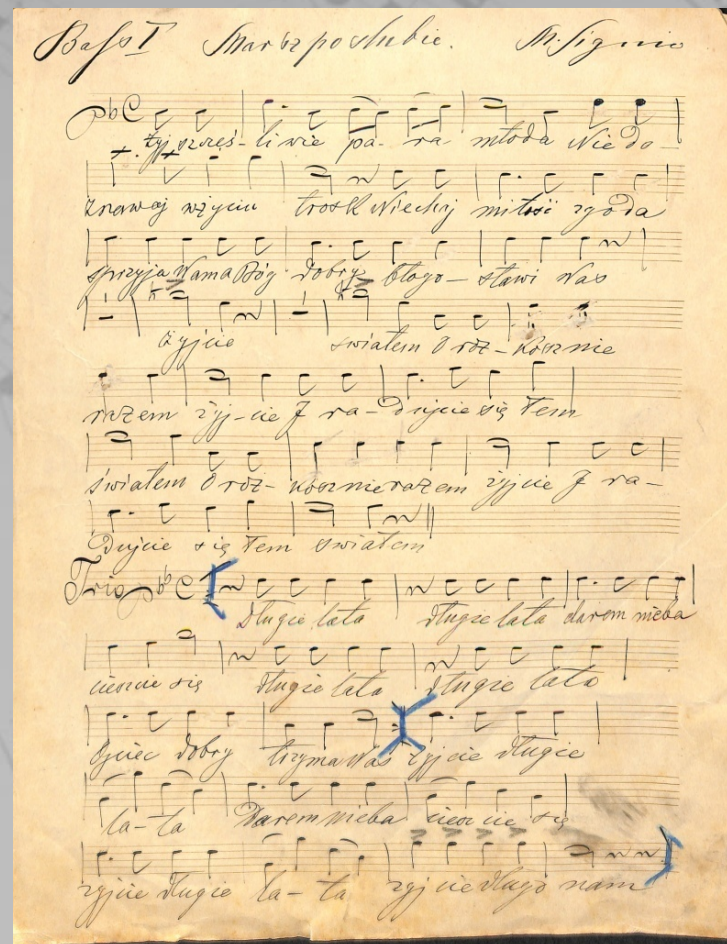 Bass I Marsz po ślubie. M. Signio
Żyj szczęś- li wie pa- ra- młoda Nie do
znawaj wżyciu trosk Niechaj miłość zgoda
sprzyja Wama Bóg dobry błogo- sławi Was
żyjcie światem O roz- kosznie
razem żyj- cie I ra- dujcie się tem
światem O roz- kosznie razem żyjcie I ra-
dujcie się tem światem
Trio Długie lata długie lata darem nieba
cieszcie się długie lata długie lata
Ojciec dobry trzyma Was żyjcie długie
la- ta Darem nieba ciesz cie się
żyjcie długie la- ta żyj cie długo nam